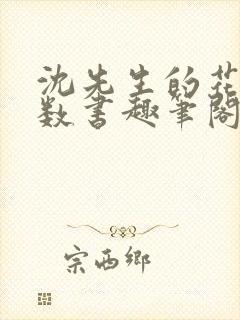 沈先生的花
数书趣笔阁
宗西鄉